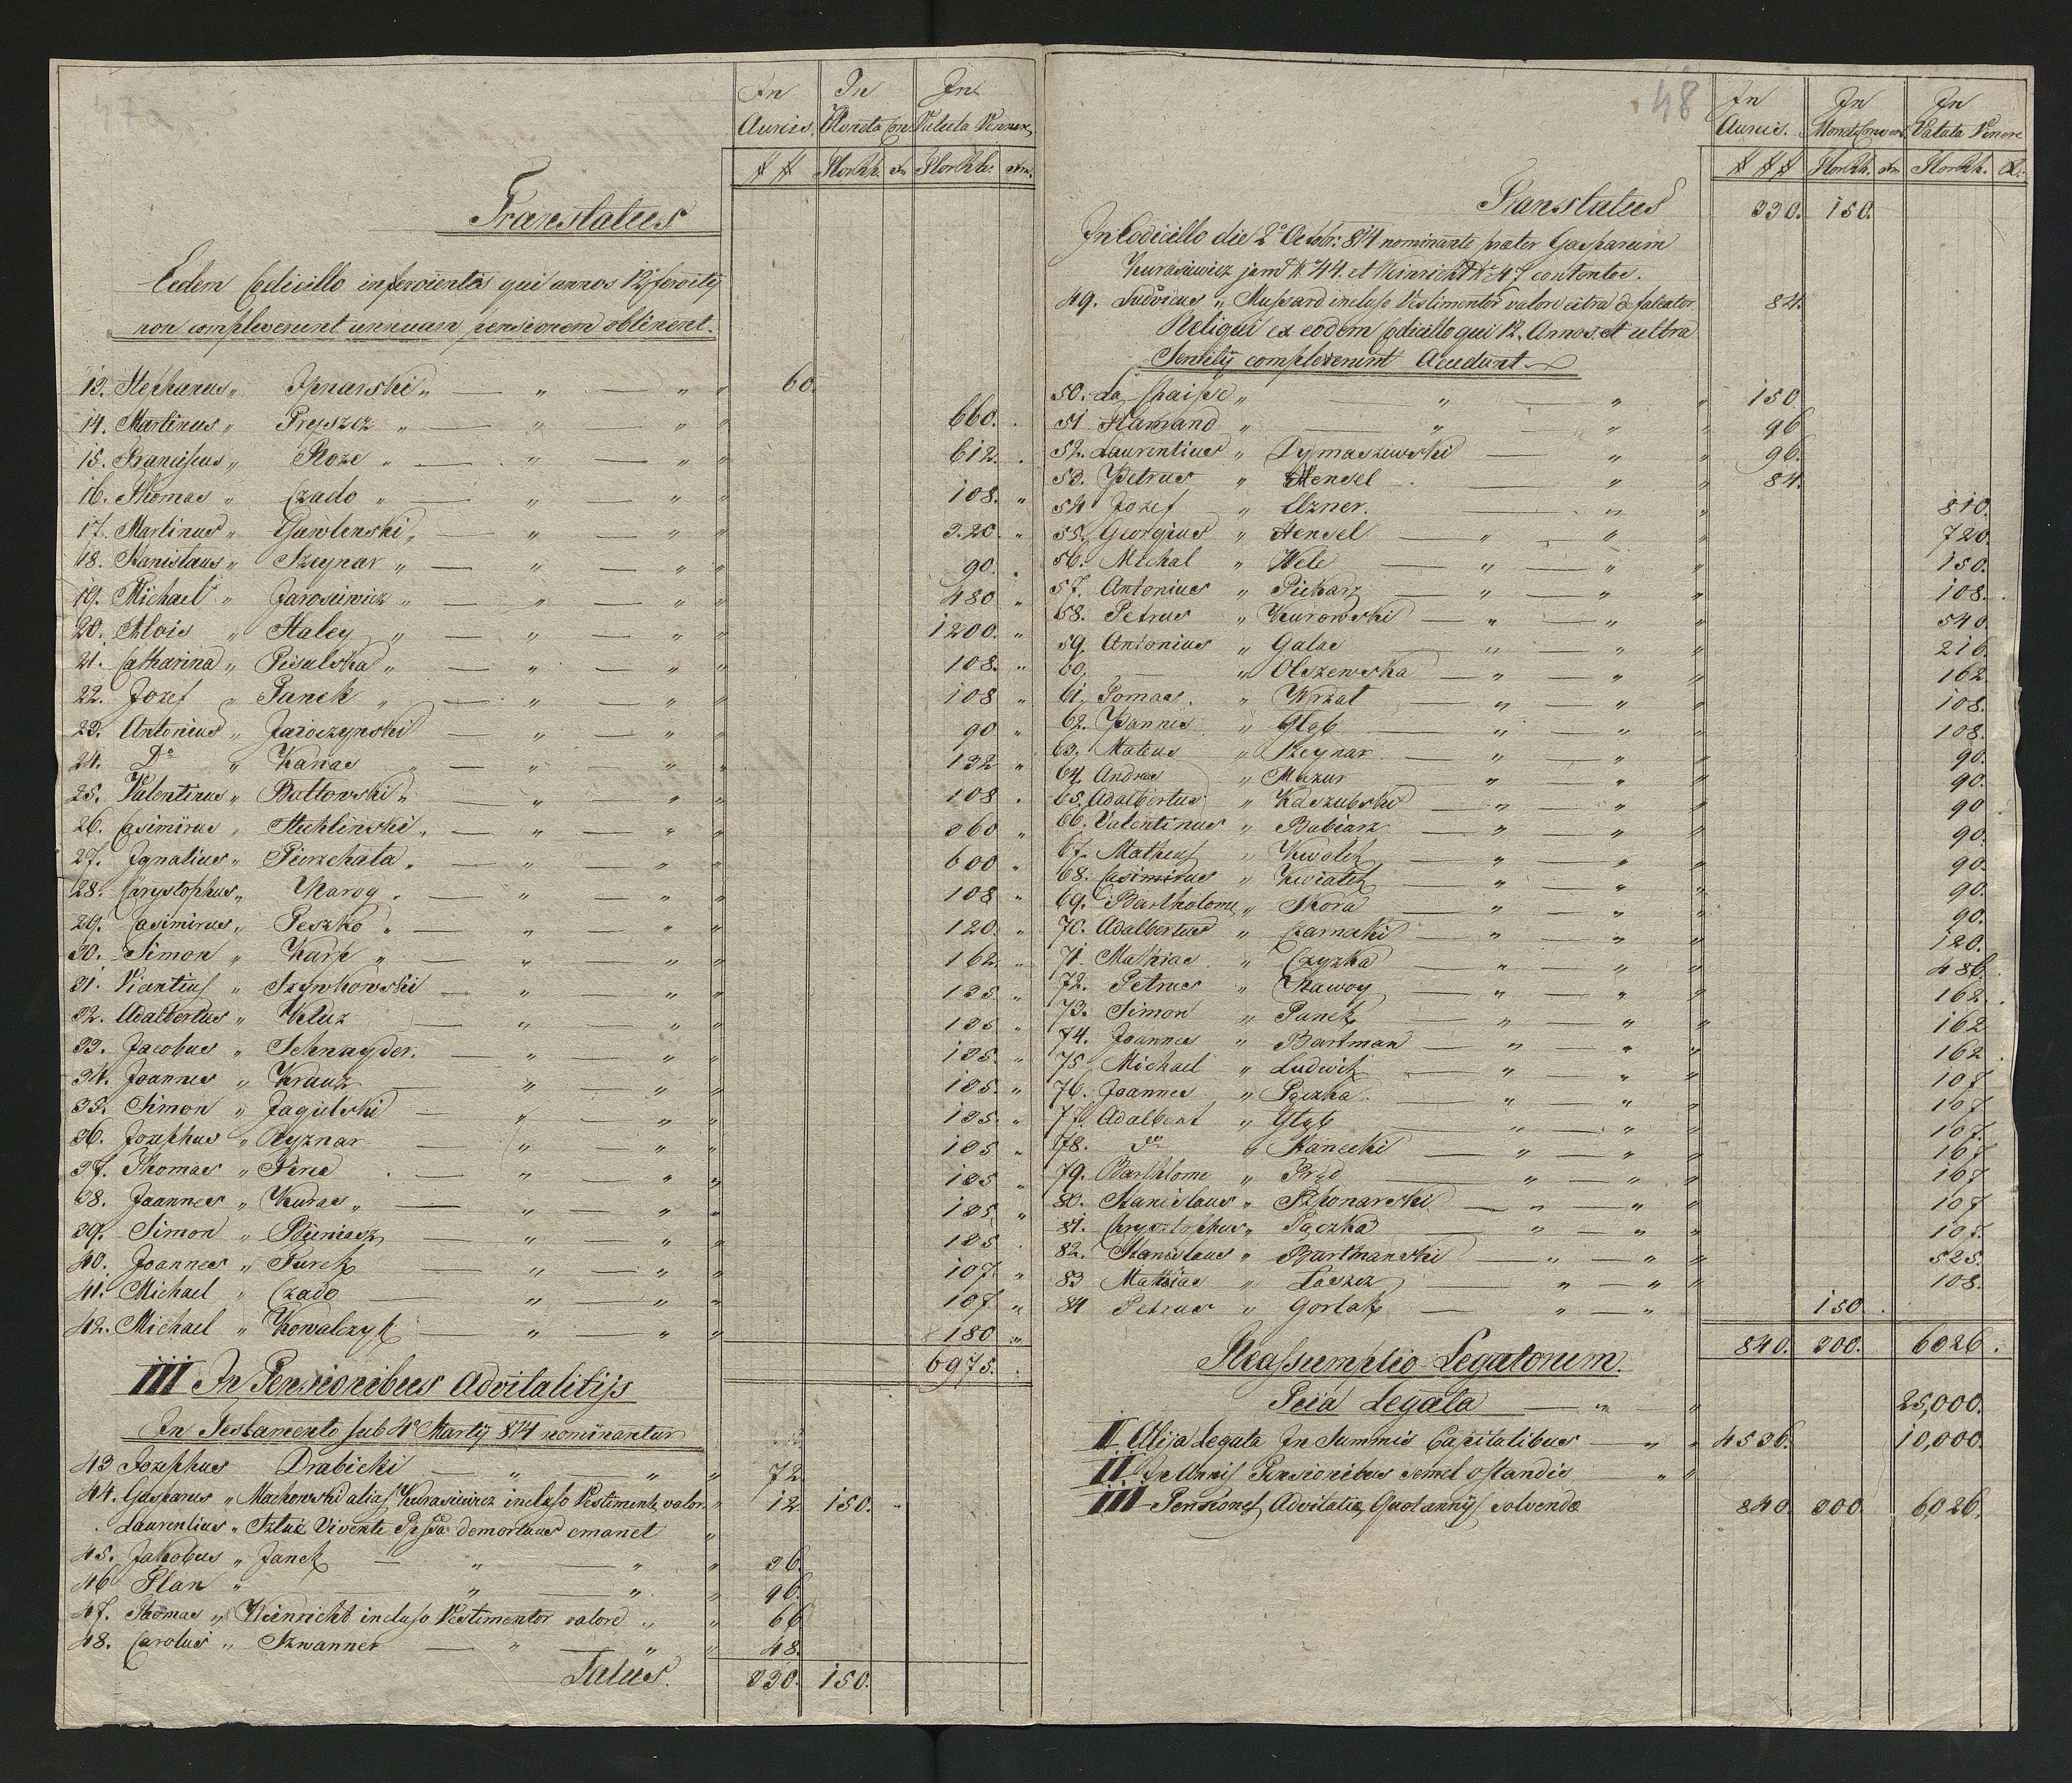 In In In
Aureis. Moneta Con. Valuta Vienen.
## Flor kh. Flor Xr.
Translatus
Eodem Codicillo inservientes qui annos 12 servitij
non compleverunt unnuam pensionem obtinent.
13. Stephanus „ Ipnarski „ — „ — „ „ 60.
14. Martinus „ Pryszcz „ — „ — „ „ 660.
15. Franciscus „ Roze „ — „ — „ „ 612.
16. Thomas „ Czado „ — „ — „ „ 108. „
17. Martinus „ Gawlenski „ — „ — „ „ 320. „
18. Stanislaus „ Szeynar „ — „ — „ „ 90. „
19. Michael „ Jarosiewicz „ — „ — „ „ 480 „
20. Alois „ Staley „ — „ — „ „ 1200. „
21. Catharina „ Pisulska „ — „ — „ „ 108. „
22. Jozef „ Panek „ — „ — „ „ 108 „
23. Antonius „ Jaroczynski — „ — „ „ 90 „
24. Do „ Kanas „ — „ — „ „ 132 „
25. Valentinus „ Battowski „ — „ — „ „ 108 .
26. Casimirus „ Stechlinski „ — „ — „ „ 360 „
27. Ignatius „ Pierzchata „ — „ — „ „ 600 „
28. Chrystophus „ Naroy „ — „ — „ „ 108 „
29. Casimirus „ Peszko „ — „ — „ „ 120. „
30. Simon „ Karp „ — „ — „ „ 162. „
31. Vicentius „ Szywkowski — „ — „ „ 135. „
32. Adalbertus „ Kluz — „ — „ „ 135 „
33. Jacobus „ Schnayder. — „ — „ „ 135. „
34. Joannes „ Krauz — „ — „ „ 135. „
35. Simon „ Jagielski — „ — „ „ 135. „
36. Josephus „ Ryznar — „ — „ „ 135 „
37. Thomas „ Pirea — „ — „ „ 135 „
38. Joannes „ Kuras „ — „ — „ „ 135 „
39. Simon „ Bieniasz — „ — „ „ 135 .
40. Joannes „ Turek — „ — „ „ 107. „
41. Michael „ Czado — „ — „ „ 107. „
42. Michael „ Kowalczyk — „ — „ „ 180 „
6975.
III In Pensionibus Advitalitijs
In Testamento sub 4o Martij 814 nominantur
43 Josephus Drabicki — „ — „ „ 72
44. Gasparus „ Machowski alias Kurasiewicz incluso Vestimento valor. „ 12 150. „
Laurentius „ Sztuc Vivente demortuus emanet „
45. Jakobus „ Janek — „ — „ „ 36
46 Plan „ — „ — „ „ 96.
47. Thomas „ Weinricht incluso Vestimentor valore „ „ 66
48. Carolus „ Szwanner — „ — „ „ 48.
Latus. 390. 150.
48
In In In
Aureis. Monet Conven. Valuta Vienen
### Flor kh. Flor kh. Xr.
Translatus 390. 150.
In Codicillo die 2o Octobr: 814 nominante præter Gasparum
Kurasiewicz jam No 44. et Weinricht No 47 contentos.
49. Ludvicus „ Mussard incluso Vestimentor valore citra defalcator 84.
Reliqui ex eodem Codicillo qui 12. Annos et ultra
Servitij compleverunt Accedunt
50. La Chaisse „ — „ — „ „ 150
51 Flamand „ — „ — „ „ 96
52. Laurentius „ Dymaszewski — „ „ 96.
53. Petrus „ Hensel — „ „ 84.
54 Jozef „ Elzner. — „ „ 810.
55. Georgius „ Hensel — „ — „ „ 720.
56. Michal „ Wele — „ — „ „ 150.
57. Antonius „ Piekarz — „ — „ „ 108.
58. Petrus „ Kurowski — „ — „ „ 540
59. Antonius „ Galas — „ — „ „ 216.
60. — „ Olszewska — „ — „ „ 162
61. Tomas. „ Krzat — „ — „ „ 108.
62. Joannes „ Głąb — „ — „ „ 108.
63. Mateus „ Szeynar — „ — „ „ 90.
64. Andreas „ Mazur — „ — „ „ 90.
65. Adalbertus „ Kaszubski — „ — „ „ 90
66. Valentinus „ Babiarz — „ — „ „ 90.
67. Matheus „ Kwolek — „ — „ „ 90.
68. Casimirus „ Kwiatek — „ — „ „ 90.
69. Bartholome „ Skora — „ — „ „ 90.
70. Adalbertus „ Czarnecki — „ — „ „ 120.
71. Mathias „ Czyzka — „ — „ „ 486.
72. Petrus „ Nawoy — „ — „ „ 162.
73. Simon „ Panek — „ — „ „ 162
74. Joannes „ Bartman — „ — „ „ 162
75 Michael „ Ludwik — „ — „ „ 107
76. Joannes „ Pączka — „ — „ „ 107
77. Adalbert „ Głąb — „ — „ „ 107.
78. do „ Kanecki — „ — „ „ 107
79. Barthlome „ Prąd — „ — „ „ 107
80. Stanislaus „ Szponarski — „ — „ „ 107
81. Chrysztophus „ Pączka — „ — „ „ 107.
82. Stanislaus „ Bartmanski — „ — „ „ 525.
83 Mathias „ Laszcz — „ — „ „ 108.
84 Petrus „ Gortak — „ — „ 150.
840. 300. 6026.
Reassumptio Legatorum.
Peia Legata — „ — „ 25,000.
I Alia Legata In Summis Capitalibus — „ „ 4536. 10,000.
II In Annis Pensionibus semel ostandis „ „
III Pensiones Advitatiæ Quotannis solvendæ 840. 300. 6,026.